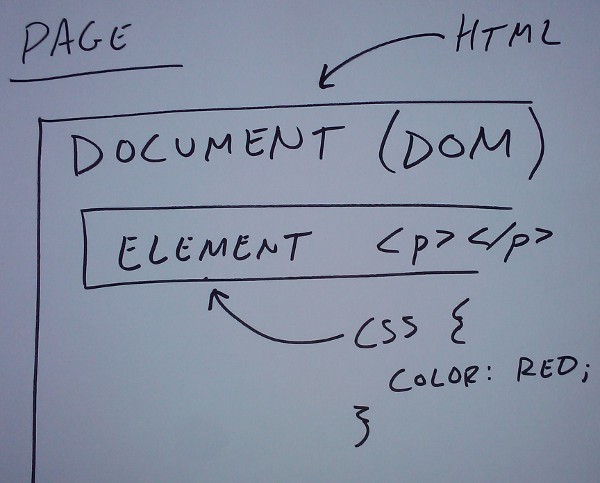 PAGE
HTML
DOCUMENT (DOM)
ELEMENT <p></p>
CSS {
COLOR: RED;
}